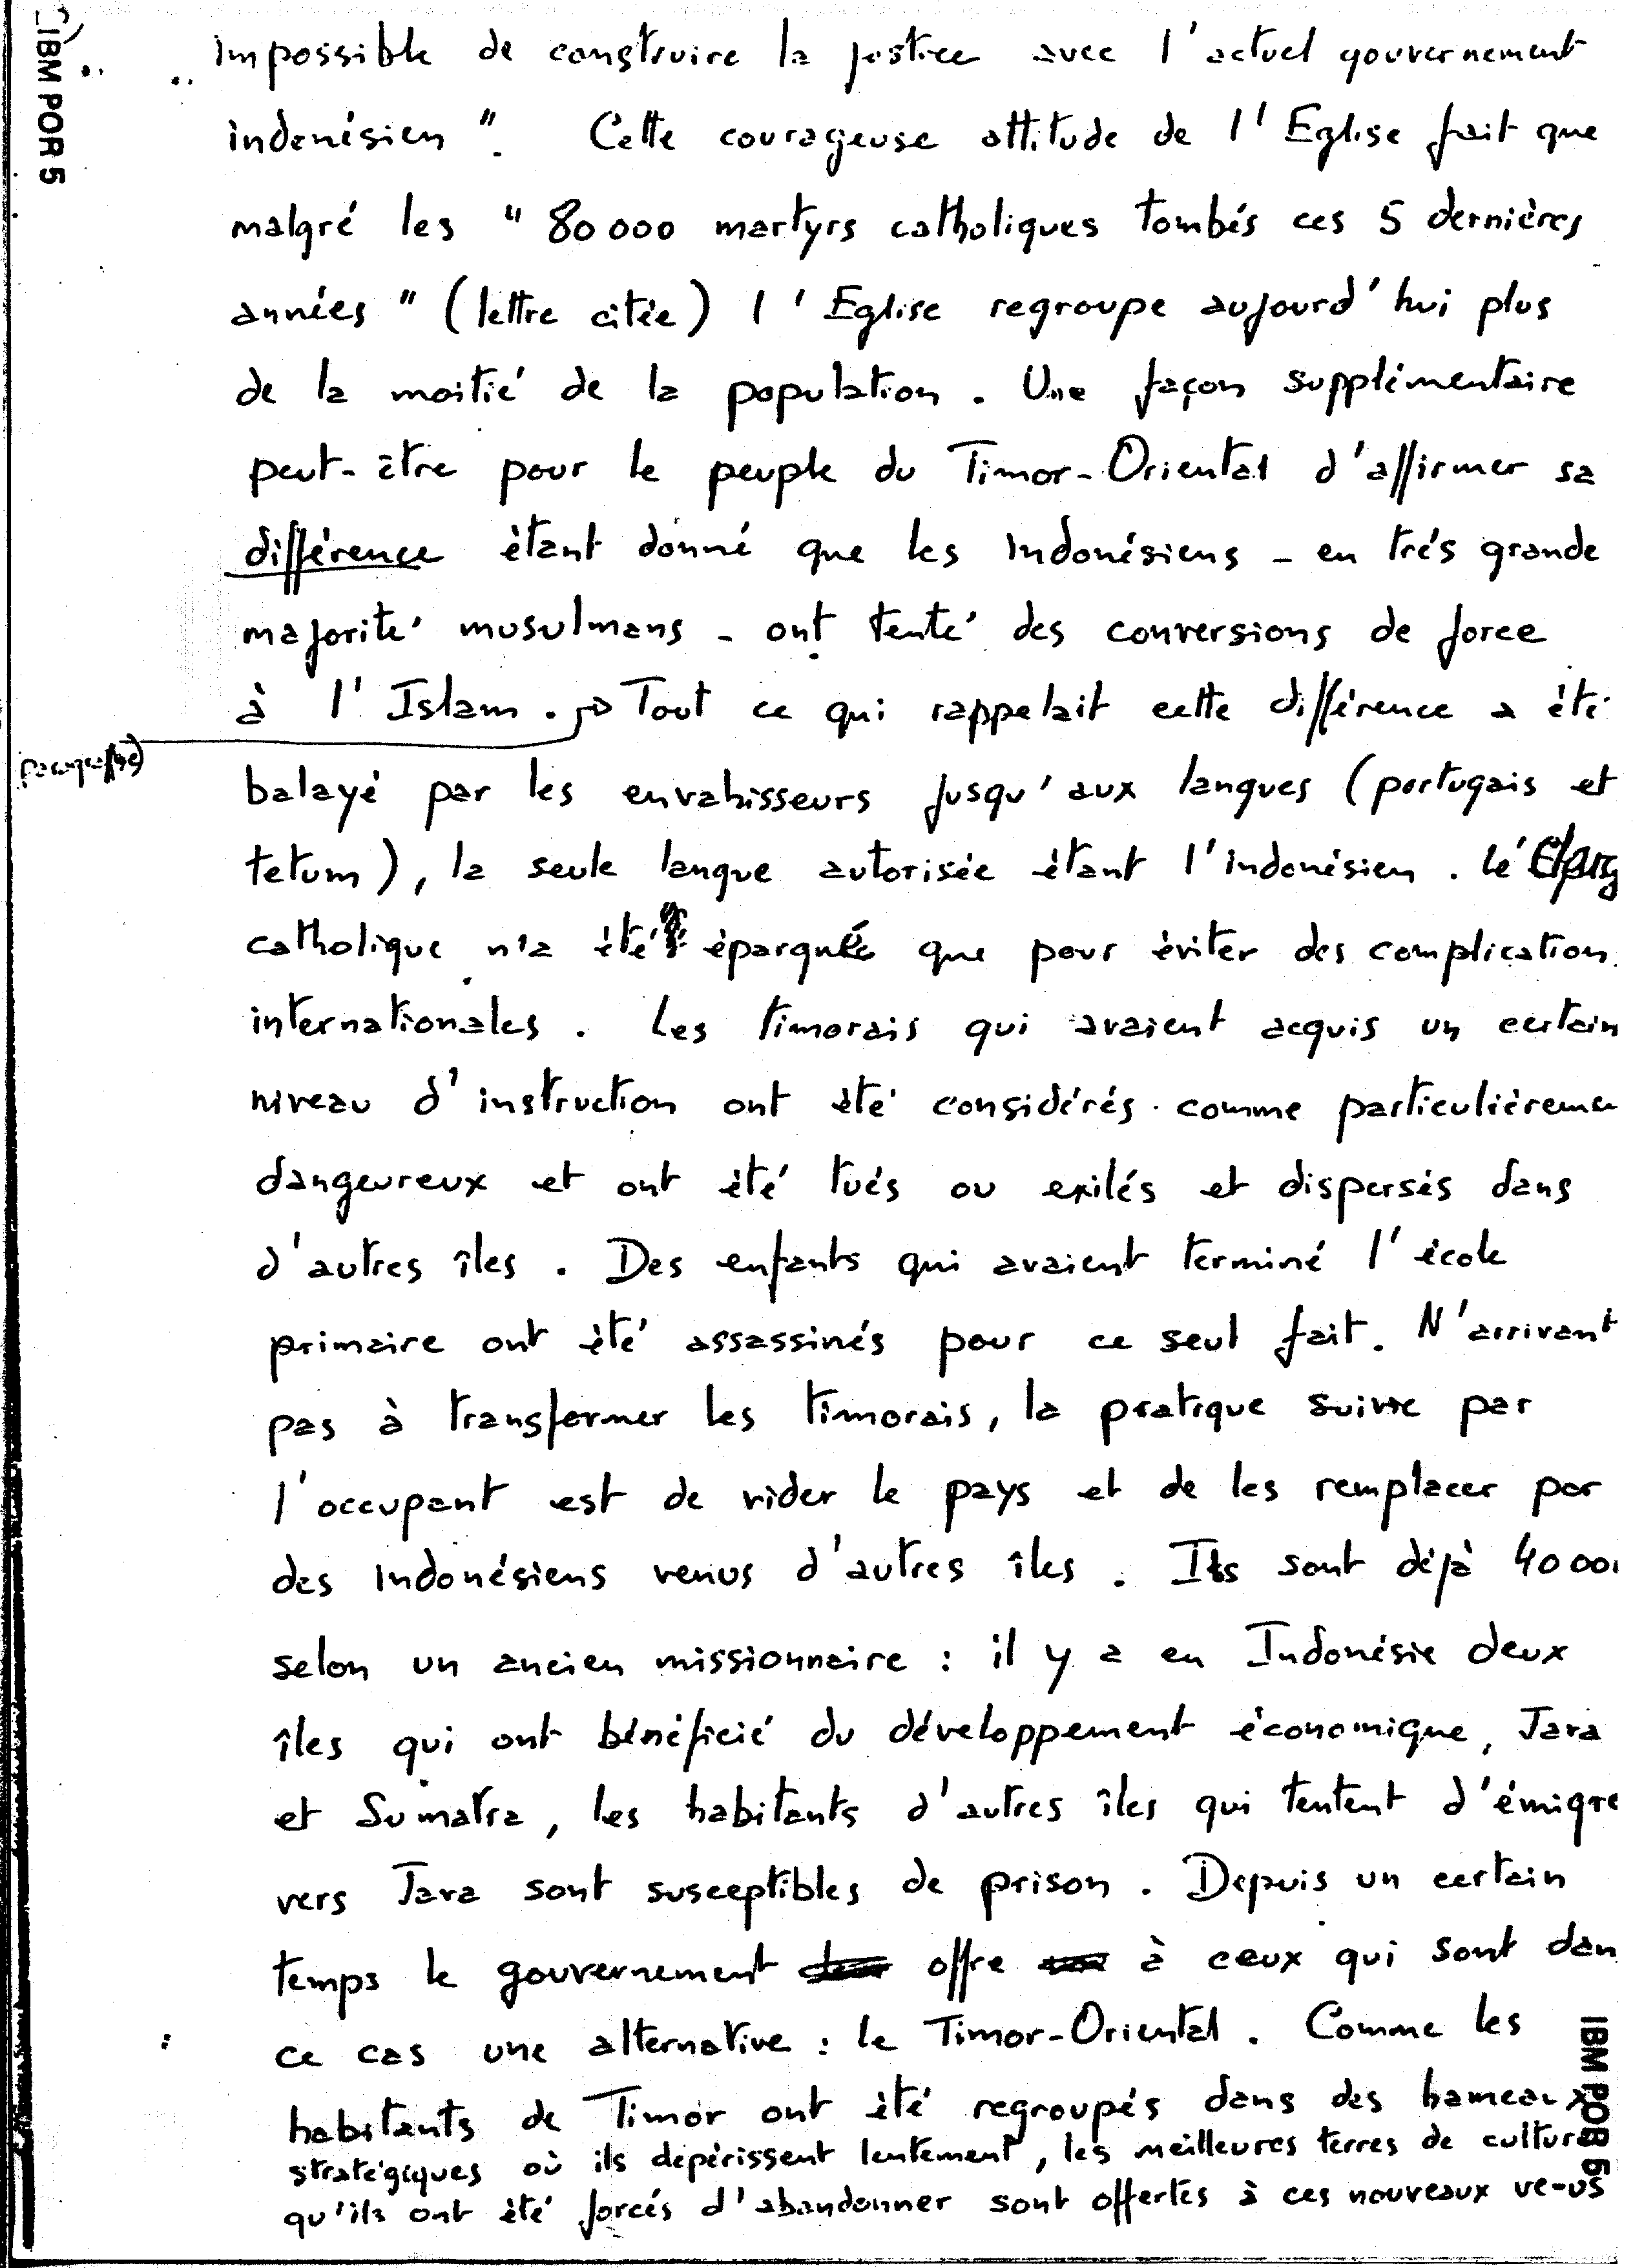 IBM POR 5
impossible de construire la justice avec l'actuel gouvernement
indonésien ". Cette courageuse attitude de l'Eglise fait que
malgré les " 80 000 martyrs catholiques tombés ces 5 dernières
années " (lettre citée) l'Eglise regroupe aujourd'hui plus
de la moitié de la population. Une façon supplémentaire
peut-être pour le peuple du Timor-Oriental d'affirmer sa
différence étant donné que les Indonésiens - en très grande
majorité musulmans - ont tenté des conversions de force
à l'Islam. Tout ce qui rappelait cette différence a été
paragraphe)
balayé par les envahisseurs jusqu'aux langues (portugais et
tetum), la seule langue autorisée étant l'indonésien. Le
catholique n'a été épargné que pour éviter des complication
internationales. Les timorais qui avaient acquis un certain
niveau d'instruction ont été considérés comme particulièreme
dangeureux et ont été tués ou exilés et dispersés dans
d'autres îles. Des enfants qui avaient terminé l'école
primaire ont été assassinés pour ce seul fait. N'arrivant
pas à transformer les timorais, la pratique suivie par
l'occupant est de vider le pays et de les remplacer par
des Indonésiens venus d'autres îles. Ils sont déjà 40 000
selon un ancien missionnaire : il y a en Indonésie deux
îles qui ont bénéficié du développement économique, Java
et Sumatra, les habitants d'autres îles qui tentent d'émigre
vers Java sont susceptibles de prison. Depuis un certain
temps le gouvernement offre à ceux qui sont dan
ce cas une alternative : le Timor-Oriental. Comme les
habitants de Timor ont été regroupés dans des hameaux
stratégiques où ils dépérissent lentement, les meilleures terres de culture
qu'ils ont été forcés d'abandonner sont offertes à ces nouveaux venus
IBM POR 5